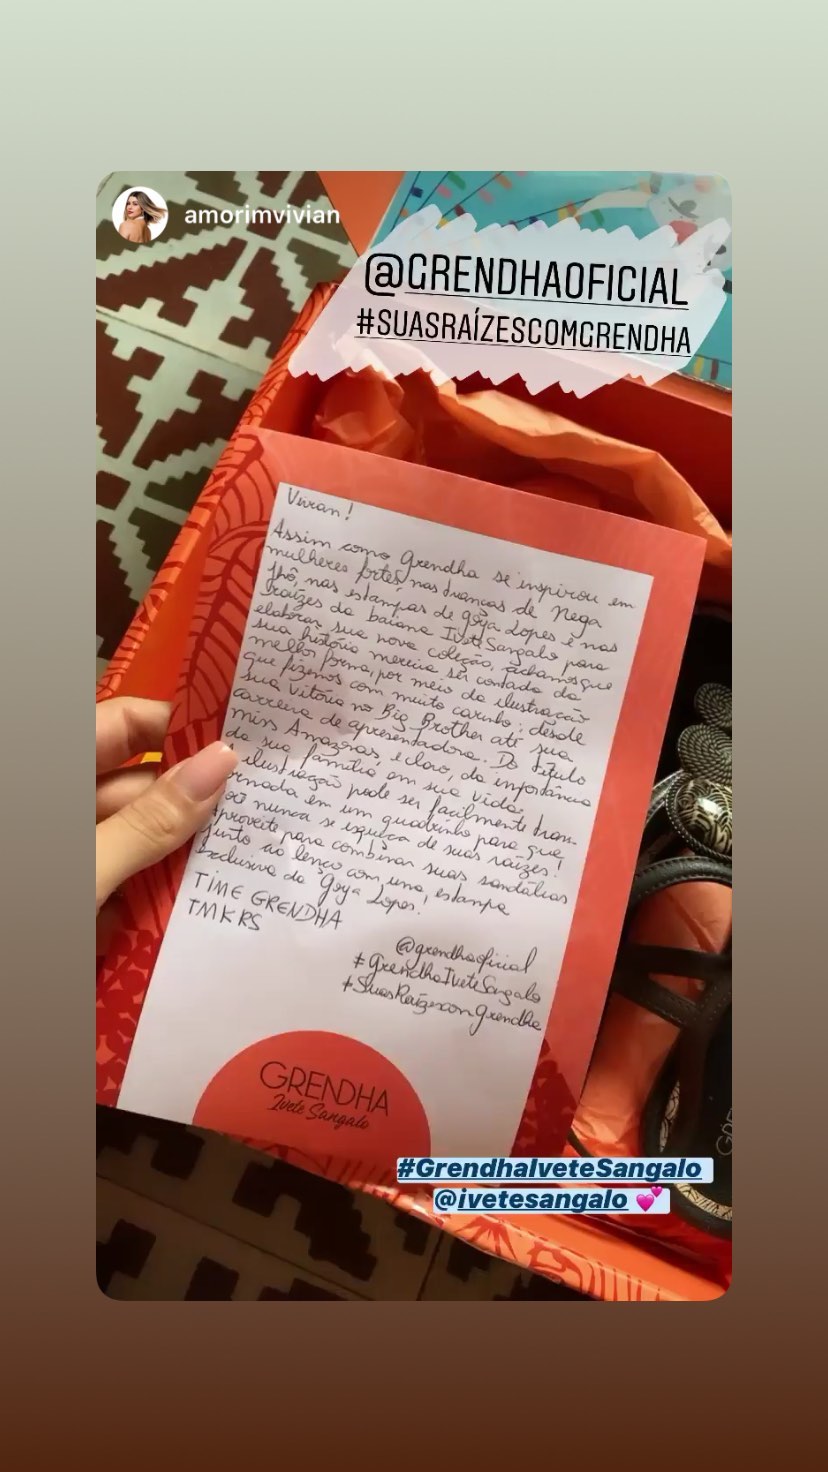 amorimvivian
@GRENDHAOFICIAL
#SUASRAÍZESCOMGRENDHA
Vivian!
Assim como Grendha se inspirou em
mulheres fortes, nas tranças de Nega
Jhô, nas estampas de Goya Lopes e nas
raízes da baiana Ivete Sangalo para
elaborar sua nova coleção, achamos que
sua história merecia ser contada da
melhor forma, por meio da ilustração
que fizemos com muito carinho: desde
sua vitória no Big Brother até sua
carreira de apresentadora. Do título
miss Amazonas, e claro, da importância
da sua família em sua vida.
ilustração pode ser facilmente tran-
ornada em um quadrinho para que
ocê nunca se esqueça de suas raízes!
Aproveite para combinar suas sandálias
junto ao lenço com uma estampa
exclusiva da Goya Lopes.
TIME GRENDHA
TMKRS
@grendhaoficial
#GrendhaIveteSangalo
#SuasRaízescomGrendha
GRENDHA
Ivete Sangalo
#GrendhaIveteSangalo
@ivetesangalo 💕